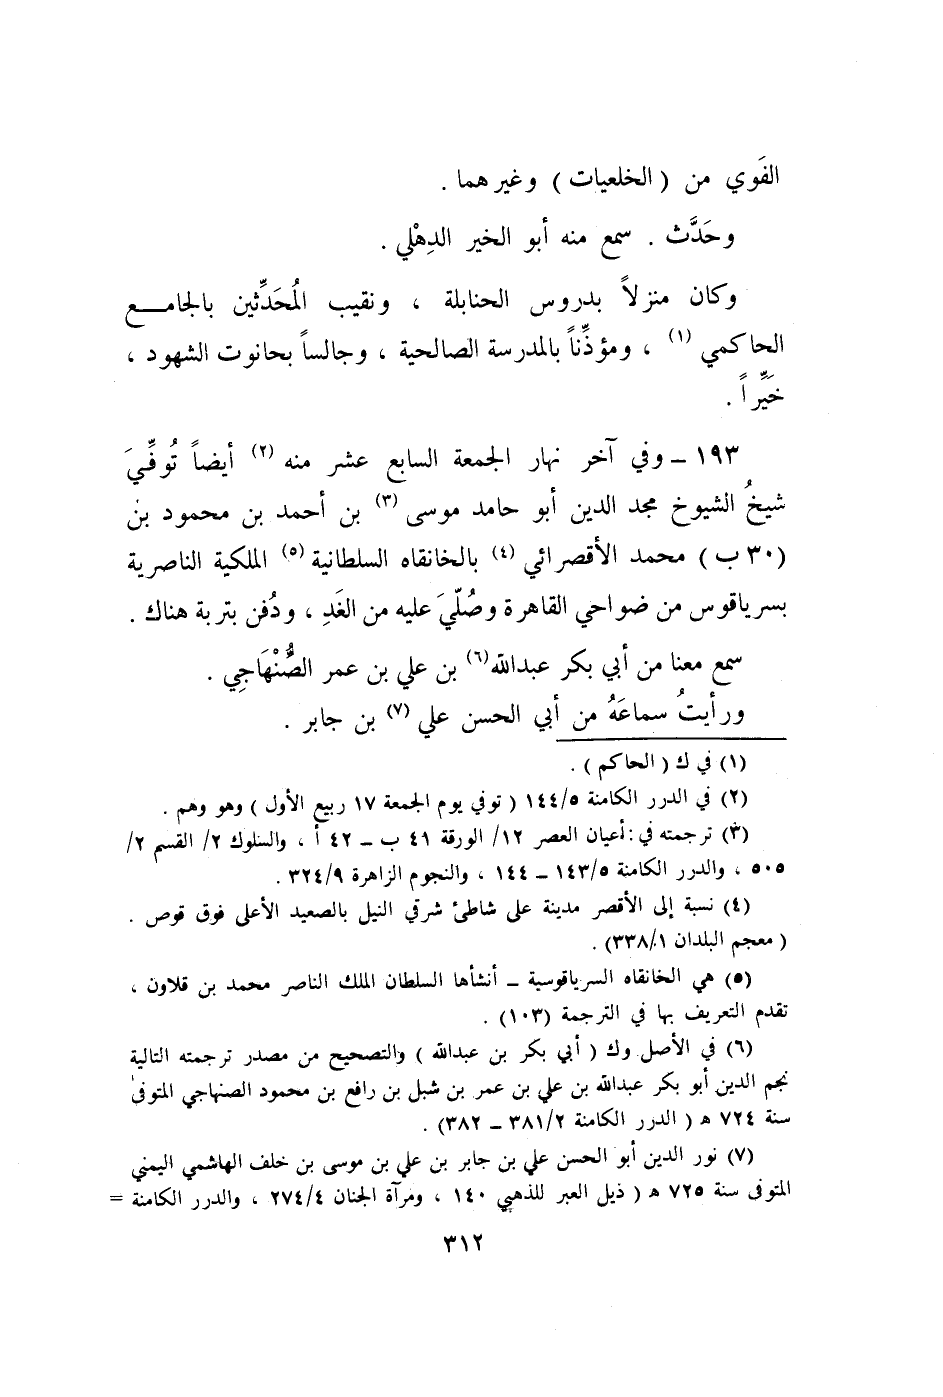 القَوي من ( الخلعيات ) وغيرهما .
وحَدَّث . سمع منه أبو الخير الدِهْلي .
وكان منزلاً بدروس الحنابلة ، ونقيب المُحَدِّثين بالجامـــع
الحاكمي (١) ، ومؤذِّناً بالمدرسة الصالحية ، وجالساً بحانوت الشهود ،
خَيِّراً .
١٩٣ ـ وفي آخر نهار الجمعة السابع عشر منه (٢) أيضاً تُوفِّيَ
شيخُ الشيوخ مجد الدين أبو حامد موسى (٣) بن أحمد بن محمود بن
(٣٠ ب ) محمد الأقصرائي (٤) بالخانقاه السلطانية (٥) الملكية الناصرية
بسرياقوس من ضواحي القاهرة وصُلّيَ عليه من الغَدِ ، ودُفن بتربة هناك .
سمع معنا من أبي بكر عبدالله(٦) بن علي بن عمر الصُّنْهَاجِي .
ورأيتُ سماعَهُ من أبي الحسن علي (٧) بن جابر .
(١) في ك ( الحاكم ) .
(٢) في الدرر الكامنة ١٤٤/٥ ( توفي يوم الجمعة ١٧ ربيع الأول ) وهو وهم .
(٣) ترجمته في : أعيان العصر ١٢/ الورقة ٤١ ب ـ ٤٢ أ ، والسلوك ٢/ القسم ٢/
٥٠٥ ، والدرر الكامنة ١٤٣/٥ ـ ١٤٤ ، والنجوم الزاهرة ٣٢٤/٩ .
(٤) نسبة إلى الأقصر مدينة على شاطئ شرقي النيل بالصعيد الأعلى فوق قوص .
( معجم البلدان ٣٣٨/١) .
(٥) هي الخانقاه السرياقوسية ـ أنشأها السلطان الملك الناصر محمد بن قلاون ،
تقدم التعريف بها في الترجمة (١٠٣) .
(٦) في الأصل وك ( أبي بكر بن عبدالله ) والتصحيح من مصدر ترجمته التالية
نجم الدين أبو بكر عبدالله بن علي بن عمر بن شبل بن رافع بن محمود الصنهاجي المتوفى
سنة ٧٢٤ ه ( الدرر الكامنة ٣٨١/٢ ـ ٣٨٢) .
(٧) نور الدين أبو الحسن علي بن جابر بن علي بن موسى بن خلف الهاشمي اليمني
المتوفى سنة ٧٢٥ ه ( ذيل العبر للذهبي ١٤٠ ، ومرآة الجنان ٢٧٤/٤ ، والدرر الكامنة =
٣١٢